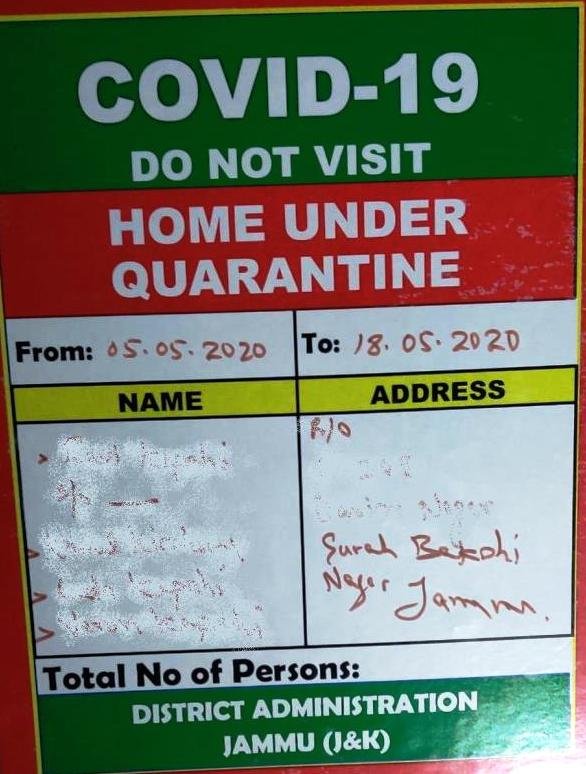 COVID-19
DO NOT VISIT
HOME UNDER
QUARANTINE
From: 05.05.2020 To: 18.05.2020
NAME ADDRESS
R/O
Nager
Surah Bakshi
Nager Jammu.
Total No of Persons:
DISTRICT ADMINISTRATION
JAMMU (J&K)